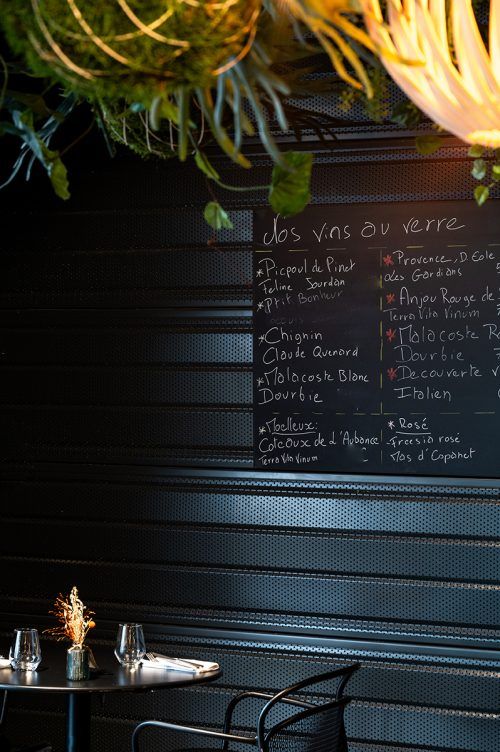 Nos vins au verre
* Picpoul de Pinet
Feline Jourdan
* P'tit Bonheur
* Chignin
Claude Quenard
* Malacoste Blanc
Dourbie
* Moelleux:
Coteaux de l'Aubance
Terra Vita Vinum
* Provence, D. Eole
des Gardians
* Anjou Rouge de
Terra Vita Vinum
* Malacoste
Dourbie
* Decouverte
Italien
* Rosé
Freesia rosé
Mas d'Capanet